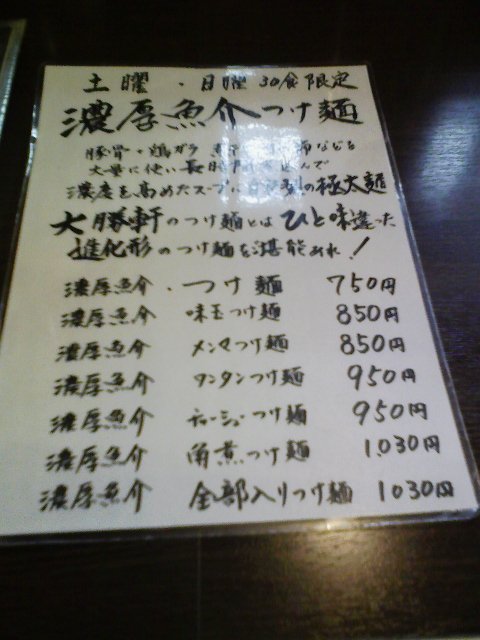 土曜・日曜 30食限定
濃厚魚介つけ麺
豚骨・鶏ガラ などを
大量に使い長時間 込んで
濃度を高めたスープに自家製の極太麺
大勝軒のつけ麺とはひと味違った
進化形のつけ麺を堪能あれ!
濃厚魚介・つけ麺 750円
濃厚魚介 味玉つけ麺 850円
濃厚魚介 メンマつけ麺 850円
濃厚魚介 ワンタンつけ麺 950円
濃厚魚介 チャーシューつけ麺 950円
濃厚魚介 角煮つけ麺 1,030円
濃厚魚介 全部入りつけ麺 1030円